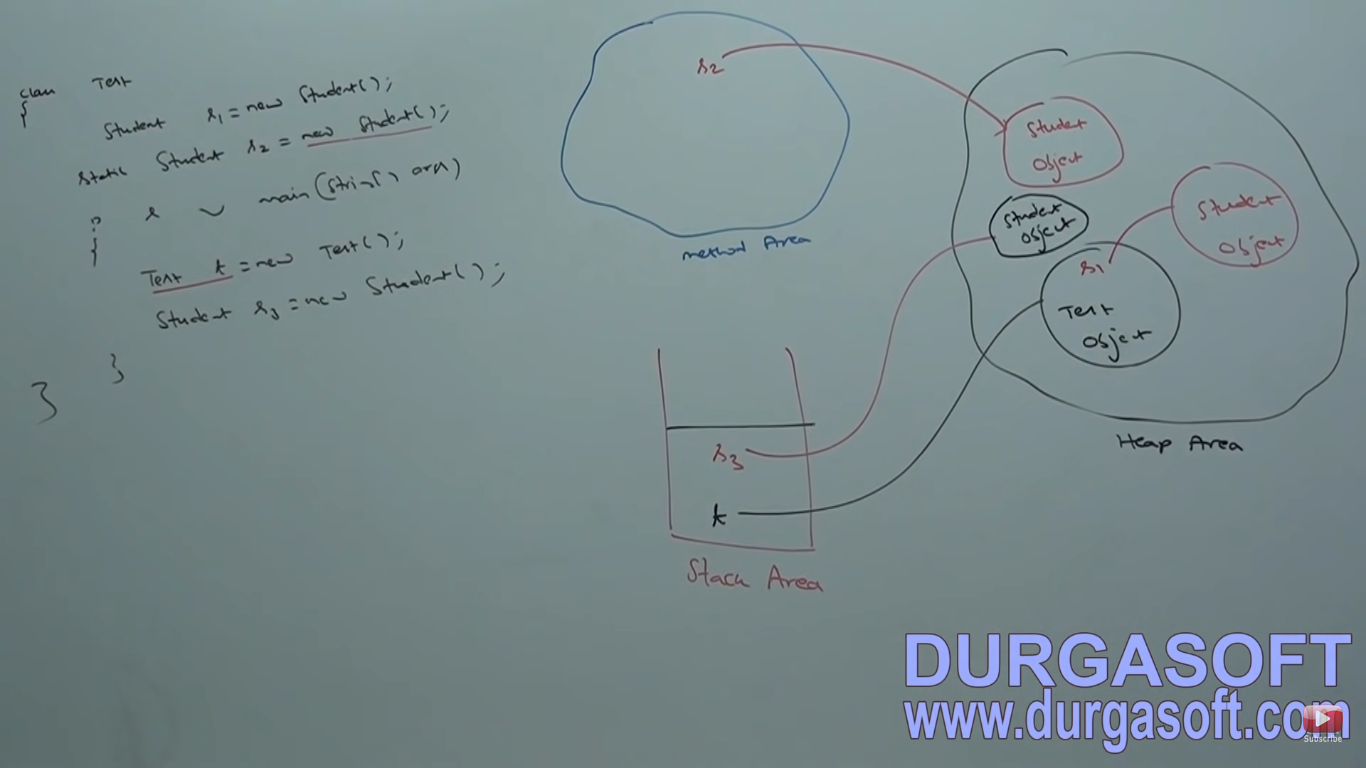 class Test
{
Student s1 = new Student();
static Student s2 = new Student();
p s v main(String[] args)
{
Test t = new Test();
Student s3 = new Student();
}
}
s2
method Area
Student
Object
Student
Object
Student
Object
s1
Test
Object
Heap Area
s3
t
Stack Area
DURGASOFT
www.durgasoft.com
Subscribe